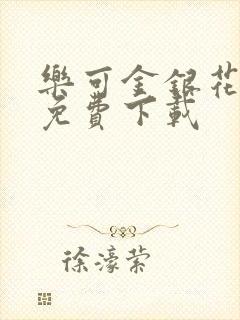 樂可金銀花
免費下載
徐濠萦